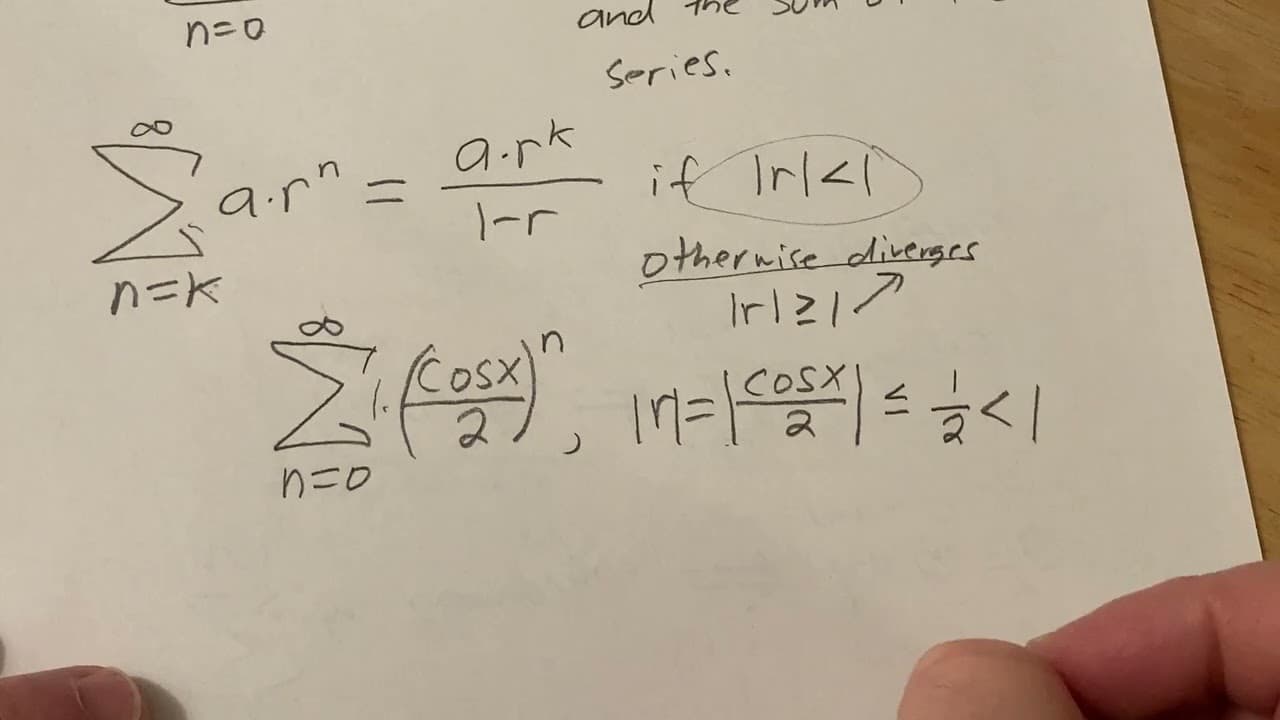 n=0
and the sum
series.
∞
∑ a·rⁿ = a·rᵏ / 1-r if |r|<1
n=k
otherwise diverges
|r|≥1 ↗
∞
∑ 1·(cosx / 2)ⁿ, |r|=|cosx / 2| ≤ 1/2 < 1
n=0